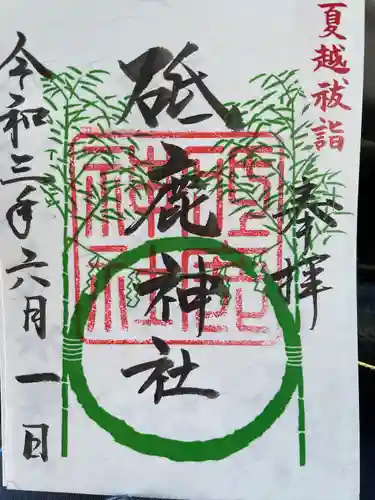 夏越祓詣
奉拝
砥鹿神社
砥鹿神社
令和三年六月一日